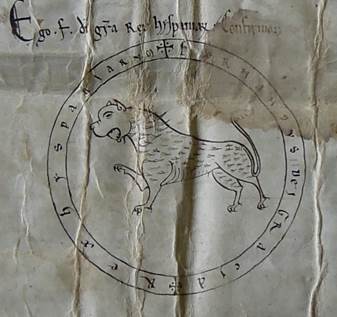 Ego. f. di gr̃a Rex hyspaniar Confirmo
✠ fERNANDVS DEI GRACIA REX hYSPANIARV